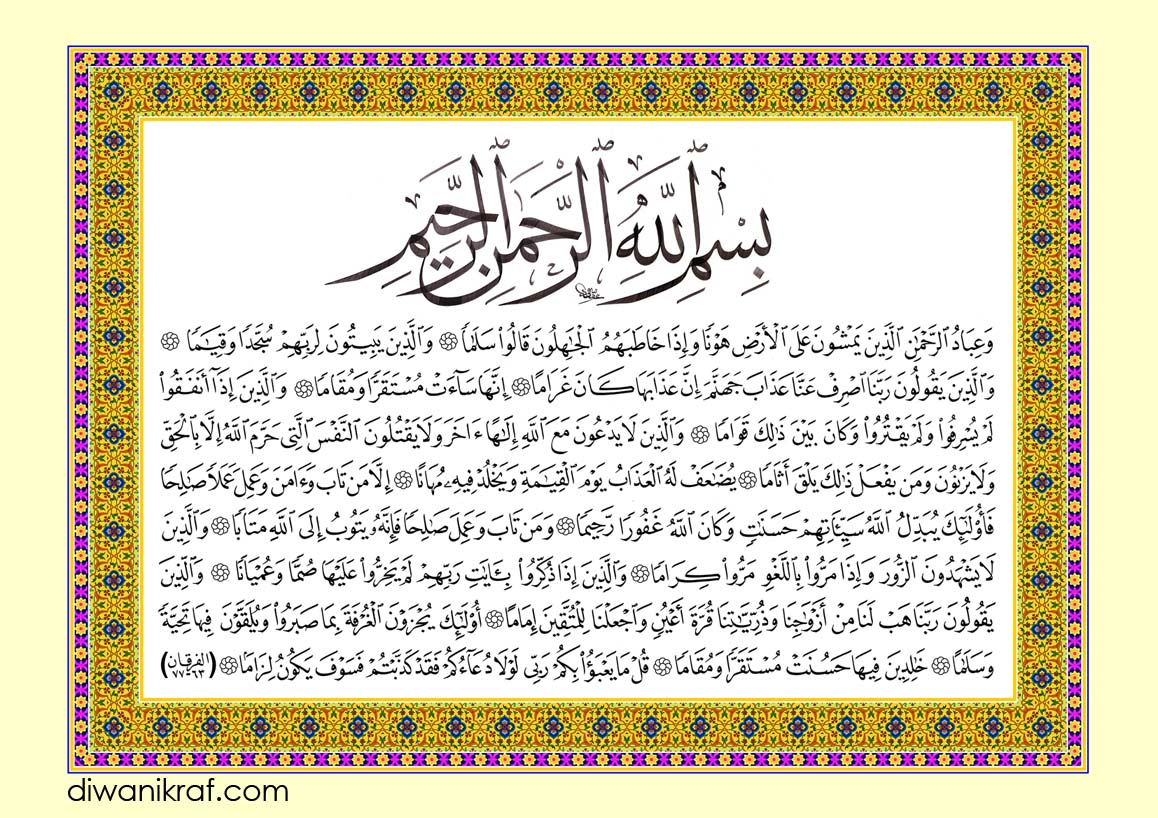 بِسْمِ ٱللَّهِ ٱلرَّحْمَٰنِ ٱلرَّحِيمِ
وَعِبَادُ ٱلرَّحْمَٰنِ ٱلَّذِينَ يَمْشُونَ عَلَى ٱلْأَرْضِ هَوْنًا وَإِذَا خَاطَبَهُمُ ٱلْجَٰهِلُونَ قَالُوا۟ سَلَٰمًا ۞ وَٱلَّذِينَ يَبِيتُونَ لِرَبِّهِمْ سُجَّدًا وَقِيَٰمًا ۞
وَٱلَّذِينَ يَقُولُونَ رَبَّنَا ٱصْرِفْ عَنَّا عَذَابَ جَهَنَّمَ إِنَّ عَذَابَهَا كَانَ غَرَامًا ۞ إِنَّهَا سَآءَتْ مُسْتَقَرًّا وَمُقَامًا ۞ وَٱلَّذِينَ إِذَآ أَنفَقُوا۟
لَمْ يُسْرِفُوا۟ وَلَمْ يَقْتُرُوا۟ وَكَانَ بَيْنَ ذَٰلِكَ قَوَامًا ۞ وَٱلَّذِينَ لَا يَدْعُونَ مَعَ ٱللَّهِ إِلَٰهًا ءَاخَرَ وَلَا يَقْتُلُونَ ٱلنَّفْسَ ٱلَّتِى حَرَّمَ ٱللَّهُ إِلَّا بِٱلْحَقِّ
وَلَا يَزْنُونَ وَمَن يَفْعَلْ ذَٰلِكَ يَلْقَ أَثَامًا ۞ يُضَٰعَفْ لَهُ ٱلْعَذَابُ يَوْمَ ٱلْقِيَٰمَةِ وَيَخْلُدْ فِيهِۦ مُهَانًا ۞ إِلَّا مَن تَابَ وَءَامَنَ وَعَمِلَ عَمَلًا صَٰلِحًا
فَأُو۟لَٰٓئِكَ يُبَدِّلُ ٱللَّهُ سَيِّـَٔاتِهِمْ حَسَنَٰتٍ وَكَانَ ٱللَّهُ غَفُورًا رَّحِيمًا ۞ وَمَن تَابَ وَعَمِلَ صَٰلِحًا فَإِنَّهُۥ يَتُوبُ إِلَى ٱللَّهِ مَتَابًا ۞ وَٱلَّذِينَ
لَا يَشْهَدُونَ ٱلزُّورَ وَإِذَا مَرُّوا۟ بِٱللَّغْوِ مَرُّوا۟ كِرَامًا ۞ وَٱلَّذِينَ إِذَا ذُكِّرُوا۟ بِـَٔايَٰتِ رَبِّهِمْ لَمْ يَخِرُّوا۟ عَلَيْهَا صُمًّا وَعُمْيَانًا ۞ وَٱلَّذِينَ
يَقُولُونَ رَبَّنَا هَبْ لَنَا مِنْ أَزْوَٰجِنَا وَذُرِّيَّٰتِنَا قُرَّةَ أَعْيُنٍ وَٱجْعَلْنَا لِلْمُتَّقِينَ إِمَامًا ۞ أُو۟لَٰٓئِكَ يُجْزَوْنَ ٱلْغُرْفَةَ بِمَا صَبَرُوا۟ وَيُلَقَّوْنَ فِيهَا تَحِيَّةً
وَسَلَٰمًا ۞ خَٰلِدِينَ فِيهَا حَسُنَتْ مُسْتَقَرًّا وَمُقَامًا ۞ قُلْ مَا يَعْبَؤُا۟ بِكُمْ رَبِّى لَوْلَا دُعَآؤُكُمْ فَقَدْ كَذَّبْتُمْ فَسَوْفَ يَكُونُ لِزَامًا ۞ (الفرقان ٦٣-٧٧)
diwanikraf.com